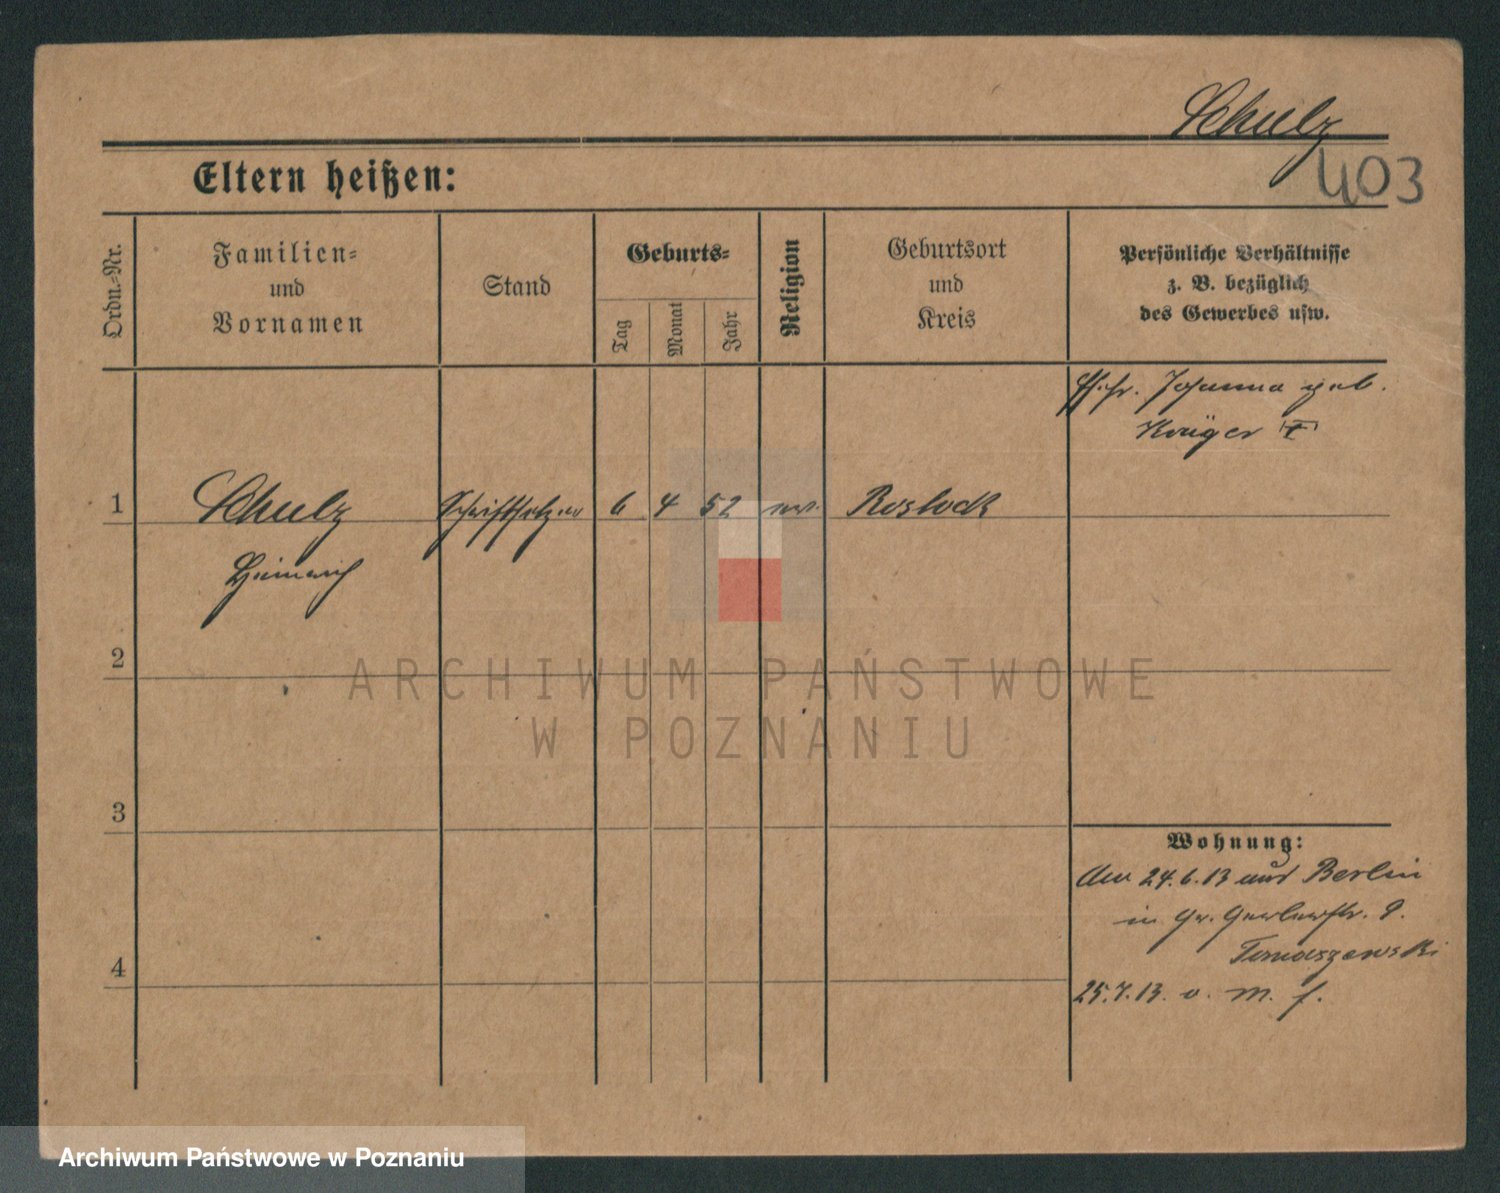 Schulz
403
Eltern heißen:
Ordn.-Nr.
Familien-
und
Vornamen
Stand
Geburts-
Tag
Monat
Jahr
Religion
Geburtsort
und
Kreis
Persönliche Verhältnisse
z. B. bezüglich
des Gewerbes usw.
Johanna geb.
Krüger
1 Schulz Schriftsetzer 6 4 52 Rostock
Heinrich
2
ARCHIWUM PAŃSTWOWE
W POZNANIU
3
Wohnung:
24.6.13 aus Berlin
in Gr. Gerberstr. 9.
Tomaszewski
4
25.7.13. o. M. f.
Archiwum Państwowe w Poznaniu